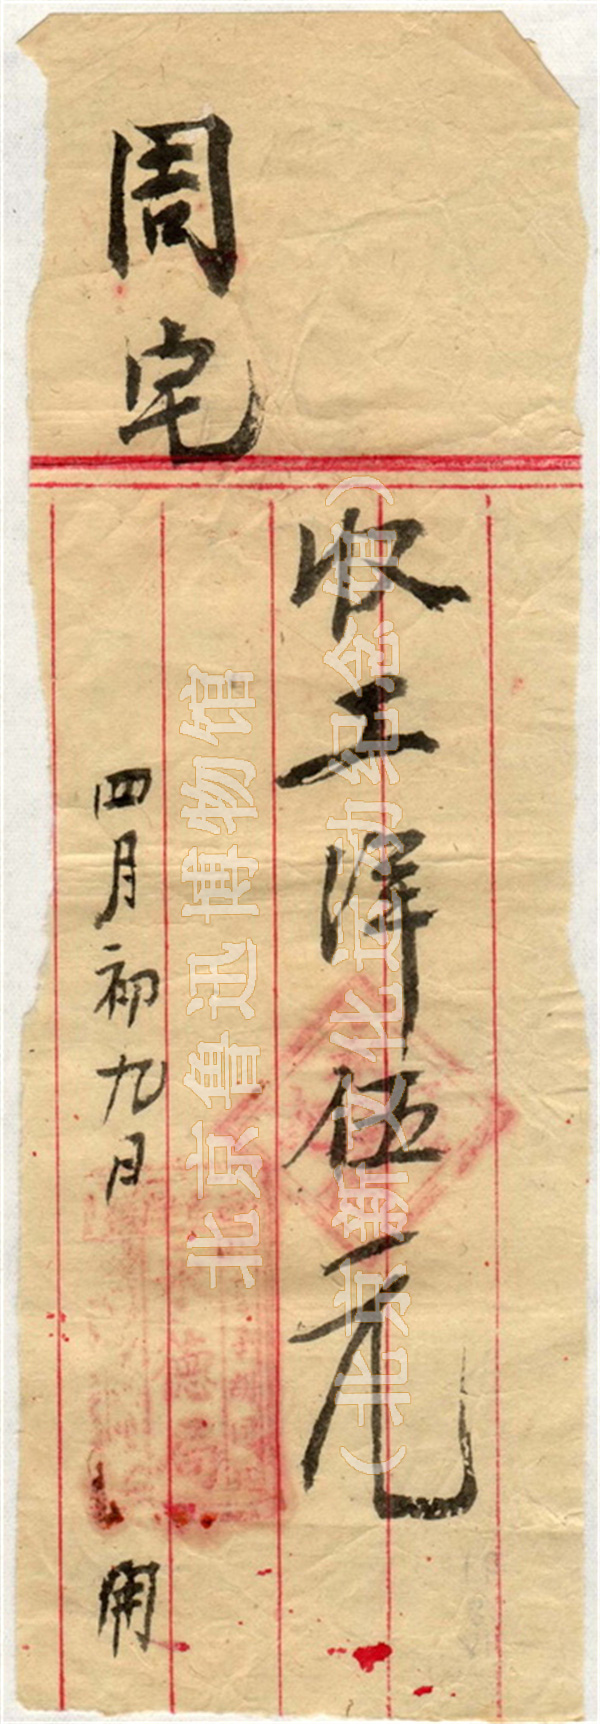 周宅
收工洋伍元
四月初九日
開
北京鲁迅博物馆
（北京新文化运动纪念馆）